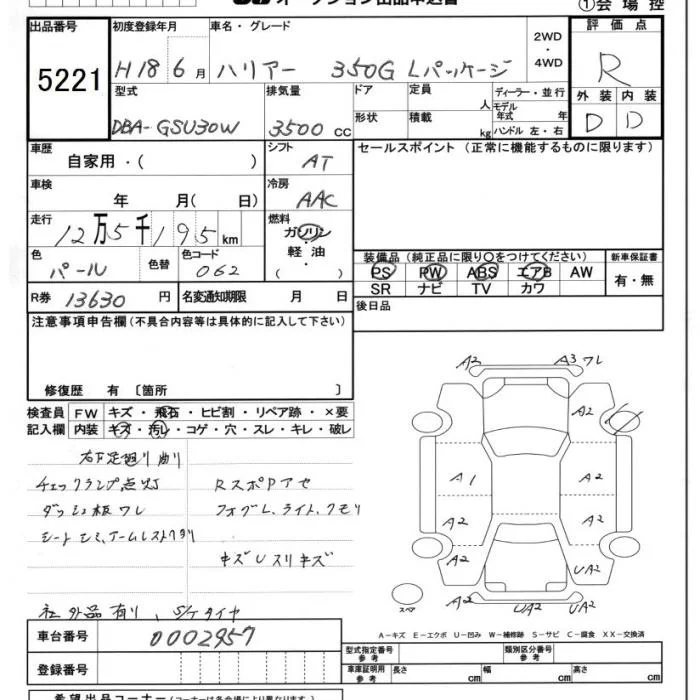 ①会場控
出品番号 初度登録年月 車名・グレード 2WD・4WD 評価点
5221 H18 6月 ハリアー 350G Lパッケージ R
型式 排気量 ドア 定員 人 ディーラー・並行 外装 内装
DBA-GSU30W 3500cc 形状 積載 kg モデル年式 年 ハンドル 左・右 D D
車歴 自家用・( ) シフト AT セールスポイント (正常に機能するものに限ります)
車検 年 月( 日) 冷房 AAC
走行 12万5千195km 燃料 ガソリン・軽油 ( )
色 パール 色替 色コード 062 装備品 (純正品に限り○をつけてください) 新車保証書
PS PW ABS エアB AW 有・無
SR ナビ TV カワ
R券 13630円 名変通知期限 月 日 後日品
注意事項申告欄 (不具合内容等は具体的に記入して下さい)
修復歴 有 〔箇所 〕
検査員 FW キズ・飛石・ヒビ割・リペア跡・×要
記入欄 内装 キズ・汚レ・コゲ・穴・スレ・キレ・破レ
チェックランプ点灯
ダッシュ板ワレ フォグL、ライト、クモリ
キズUスリキズ
社外品有り、S/Kタイヤ
A2 A3 ワレ
A2 A2
A1 A2
A2 A2
A2 UA2
スペア A2 UA2 UA2
A-キズ E-エクボ U-凹み W-補修跡 S-サビ C-腐食 XX-交換済
車台番号 0002957
登録番号
型式指定番号 参考 類別区分番号 参考
車庫証明用 参考 長さ cm 幅 cm 高さ cm
希望出品コーナー (コーナーは各会場により異なります。)